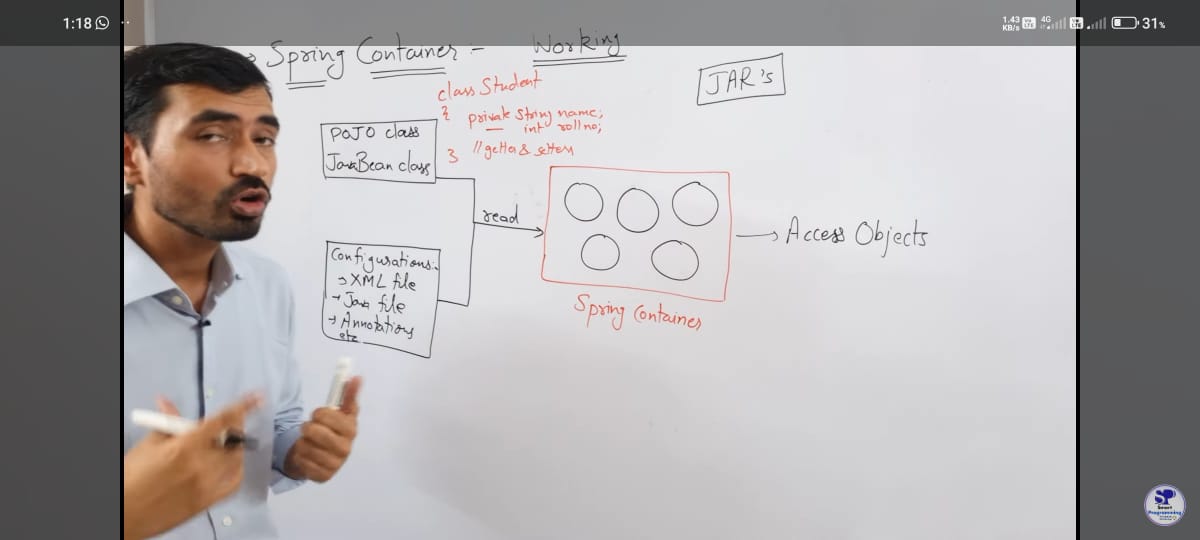 1:18
1.43 KB/s 4G 31%
Spring Container - Working
JAR's
class Student
{ private String name;
int rollno;
} // getter & setters
POJO class
JavaBean class
read
Access Objects
Configurations:
→ XML file
→ Java file
→ Annotations
etc
Spring Container
SP
Smart
Programming